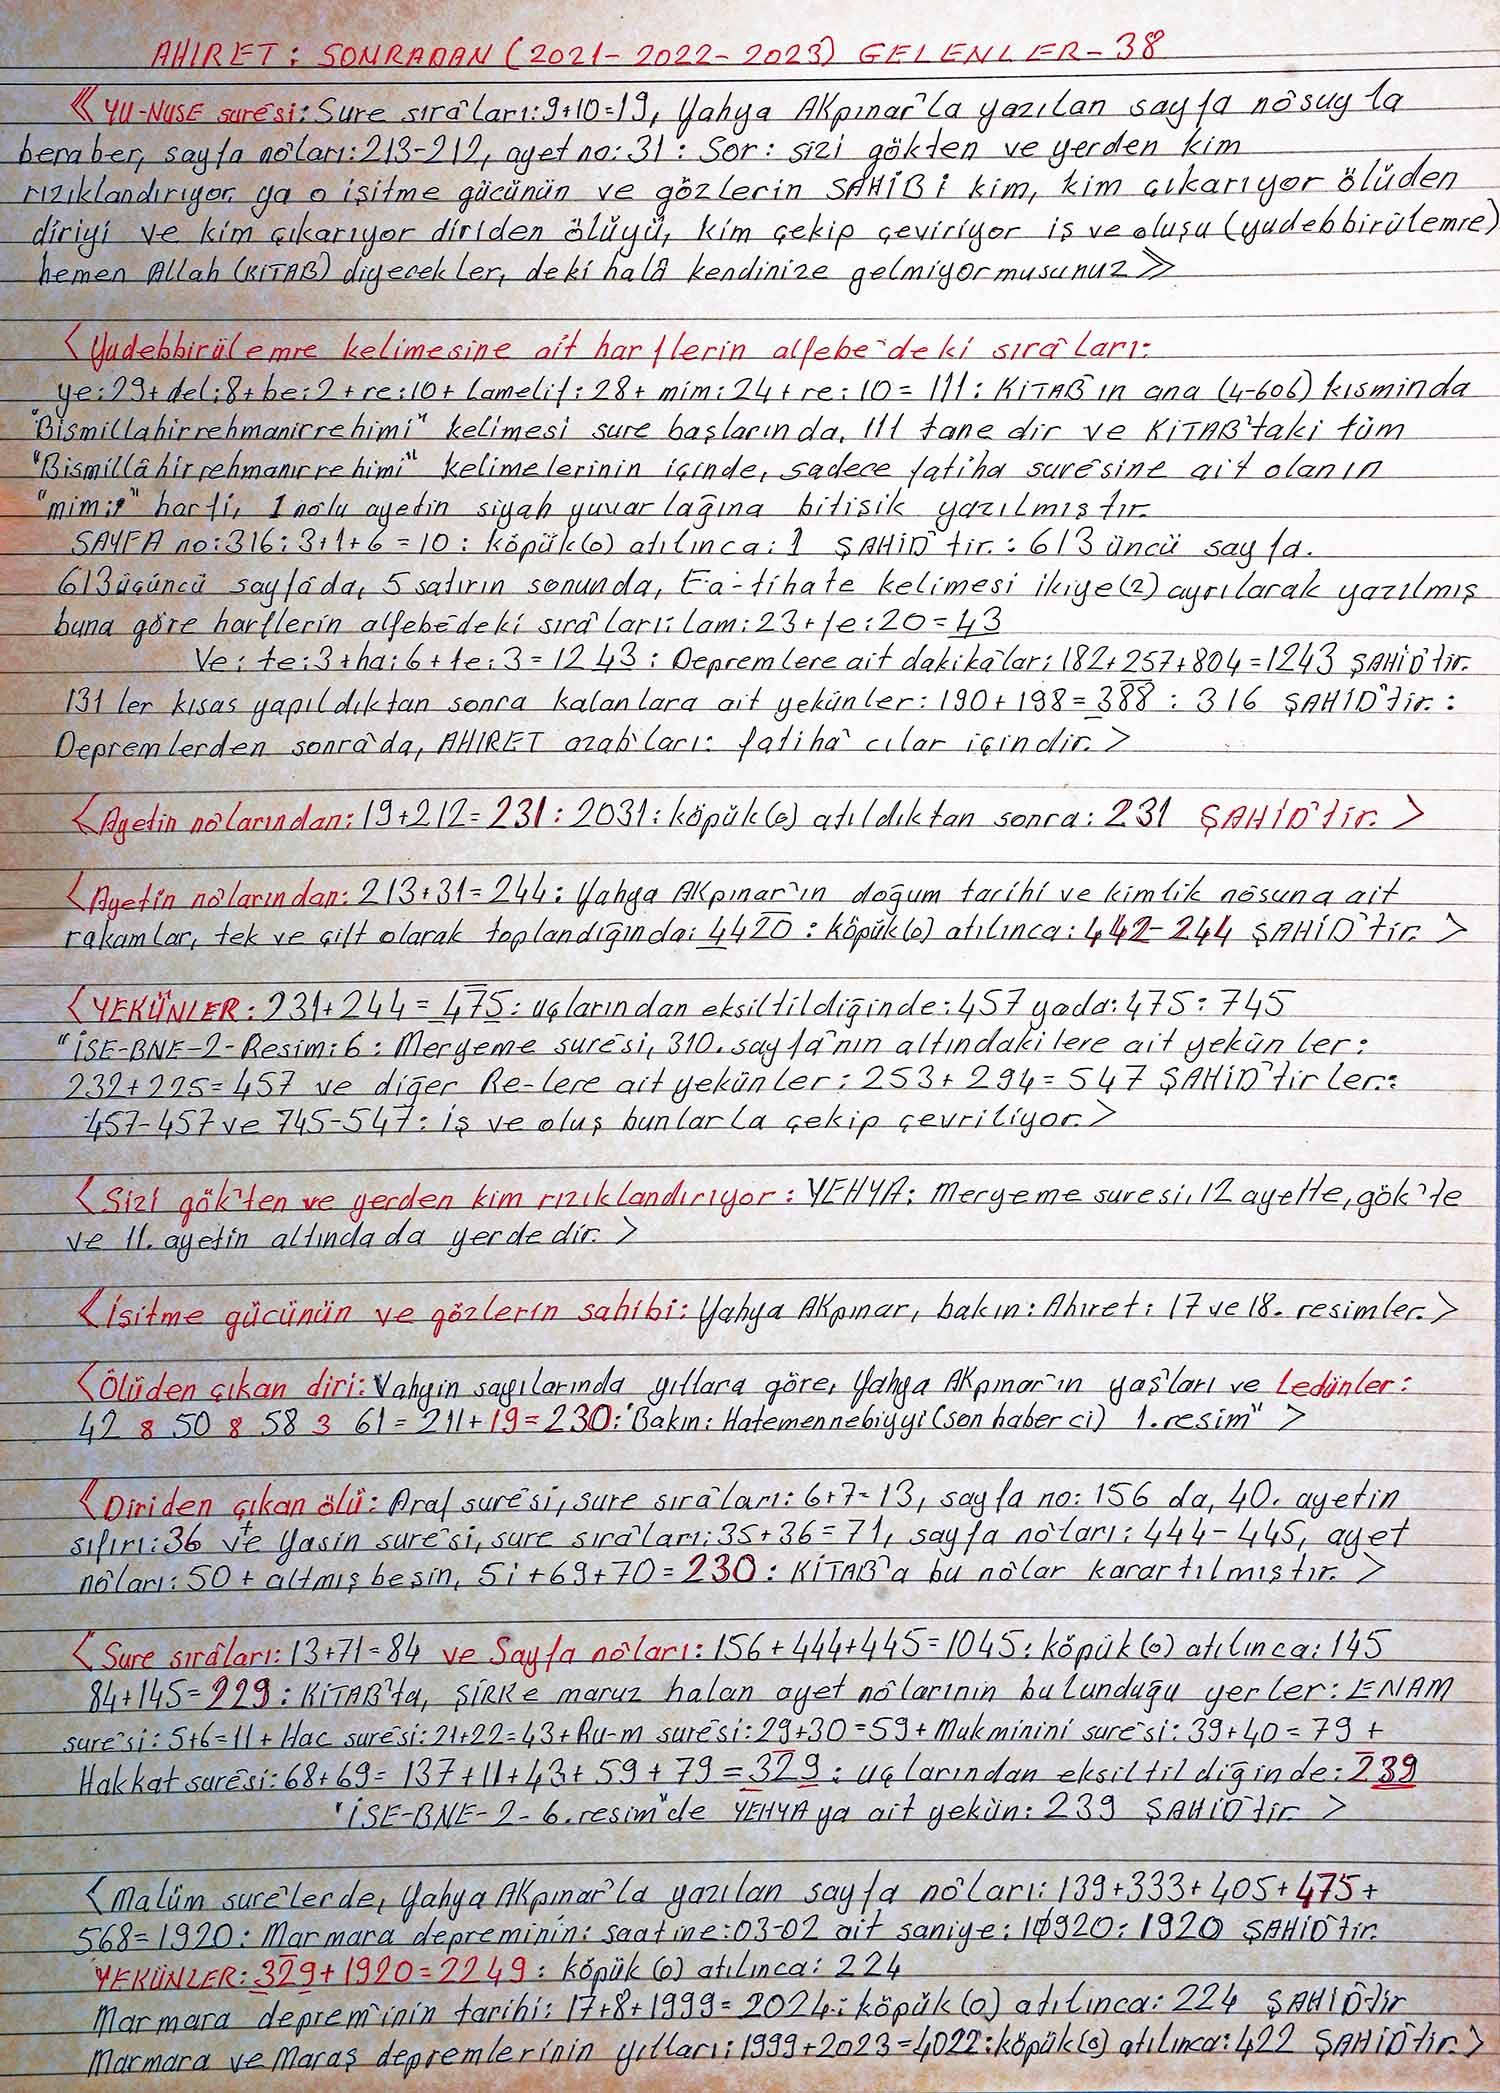 AHIRET : SONRADAN (2021-2022-2023) GELENLER-38
《YU-NUSE surêsi: Sure sırâları:9+10=19, Yahya AKpınar'la yazılan sayfa nôsuyla
beraber, sayfa nôları:213-212, ayet no:31 : Sor: sizi gökten ve yerden kim
rızıklandırıyor, ya o işitme gücünün ve gözlerin SAHİBİ kim, kim çıkarıyor ölüden
diriyi ve kim çıkarıyor diriden ölüyü, kim çekip çeviriyor iş ve oluşu (yudebbirülemre)
hemen Allah (KİTAB) diyecekler, deki halâ kendinize gelmiyormusunuz》
<Yudebbirülemre kelimesine ait harflerin alfebe'deki sırâları:
ye:29+del:8+be:2+re:10+Lamelif:28+mim:24+re:10=111: KİTAB'ın ana (4-606) kısmında
"Bismillahirrehmanirrehimi" kelimesi sure başlarında, 111 tane dir ve KİTAB'taki tüm
"Bismillâhirrehmanırrehimi" kelimelerinin içinde, sadece fatiha surêsine ait olanın
"mim:م" harfi, 1 nolu ayetin siyah yuvarlağına bitişik yazılmıştır.
SAYFA no:316:3+1+6=10: köpük(o) atılınca:1 ŞAHİD'tir.:613 üncü sayfa.
613üçüncü sayfada, 5 satırın sonunda, Fa-tihate kelimesi ikiye(2) ayrılarak yazılmış
buna göre harflerin alfebêdeki sırâları:lam:23+fe:20=43
Ve: te:3+ha:6+te:3=1243: Depremlere ait dakikâlar:182+257+804=1243 ŞAHİD'tir.
131 ler kısas yapıldıktan sonra kalanlara ait yekünler:190+198=388 : 316 ŞAHİD'tir.:
Depremlerden sonrâda, AHIRET azab'ları: fatiha'cılar içindir.>
<Ayetin nôlarından:19+212=231:2031:köpük(o) atıldıktan sonra:231 ŞAHİD'tir.>
<Ayetin nôlarından:213+31=244: Yahya AKpınar'ın doğum tarihi ve kimlik nôsuna ait
rakamlar, tek ve çift olarak toplandığında:4420 : köpük(o) atılınca:442-244 ŞAHİD'tir.>
<YEKÜNLER:231+244=475: uçlarından eksiltildiğinde:457 yada:475:745
"İSE-BNE-2-Resim:6 : Meryeme surêsi, 310.sayfâ'nın altındakilere ait yekünler:
232+225=457 ve diğer Re-lere ait yekünler:253+294=547 ŞAHİD'tirler.:
457-457 ve 745-547: iş ve oluş bunlarla çekip çevriliyor.>
<Sizi gök'ten ve yerden kim rızıklandırıyor: YEHYA: Meryeme suresi,12 ayette, gök'te
ve 11. ayetin altındada yerdedir.>
<İşitme gücünün ve gözlerin sahibi: Yahya AKpınar, bakın: Ahıret: 17 ve 18. resimler.>
<Ölüden çıkan diri: Vahyin sayılarında yıllara göre, Yahya AKpınar'ın yaş'ları ve Ledünler:
42 8 50 8 58 3 61=211+19=230: "Bakın: Hatemennebiyyi(son haberci) 1.resim" >
<Diriden çıkan ölü: Araf surêsi, sure sırâları:6+7=13, sayfa no:156 da, 40. ayetin
sıfırı:36 + ve Yasin surêsi, sure sırâları:35+36=71, sayfa nôları:444-445, ayet
nôları:50+altmış beşin, 5i+69+70=230: KİTAB'a bu nôlar karartılmıştır.>
<Sure sırâları:13+71=84 ve Sayfa nôları:156+444+445=1045: köpük(o) atılınca:145
84+145=229: KİTAB'ta, ŞİRKe maruz halan ayet nôlarının bulunduğu yerler: ENAM
surêsi:5+6=11+Hac surêsi:21+22=43+Ru-m surêsi:29+30=59+Mukminini surêsi:39+40=79+
Hakkat surêsi:68+69=137+11+43+59+79=329: uçlarından eksiltildiğinde:239
"İSE-BNE-2-6.resim"de YEHYAya ait yekün:239 ŞAHİD'tir >
<Malüm surêlerde, Yahya AKpınar'la yazılan sayfa nôları:139+333+405+475+
568=1920: Marmara depreminin: saatine:03-02 ait saniye:10920:1920 ŞAHİD'tir.
YEKÜNLER:329+1920=2249: köpük (o) atılınca:224
Marmara deprem'inin tarihi:17+8+1999=2024.: köpük(o) atılınca:224 ŞAHİD'tir
Marmara ve Maraş depremlerinin yılları:1999+2023=4022:köpük(o) atılınca:422 ŞAHİD'tir.>